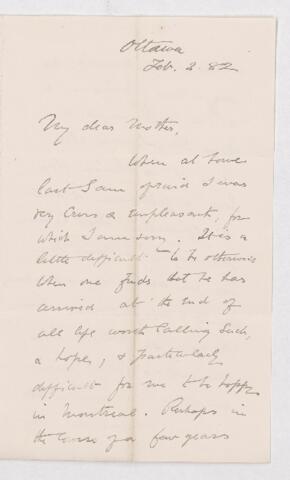 Ottawa
Feb. 3. 82
My dear Mother,
When at home
last I am afraid I was
very cross & unpleasant, for
which I am sorry. It is a
little difficult to be otherwise
when one finds that he has
arrived at the end of
all life worth calling such,
a hopes, & particularly
difficult for me to be happy
in Montreal. Perhaps in
the course of a few years